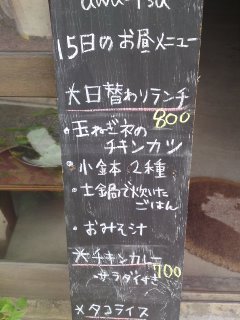 15日のお昼メニュー
*日替わりランチ
800
・玉ねぎ衣の
チキンカツ
・小鉢 2種
・土鍋で炊いた
ごはん
・おみそ汁
*チキンカレー
サラダ付き
700
*タコライス